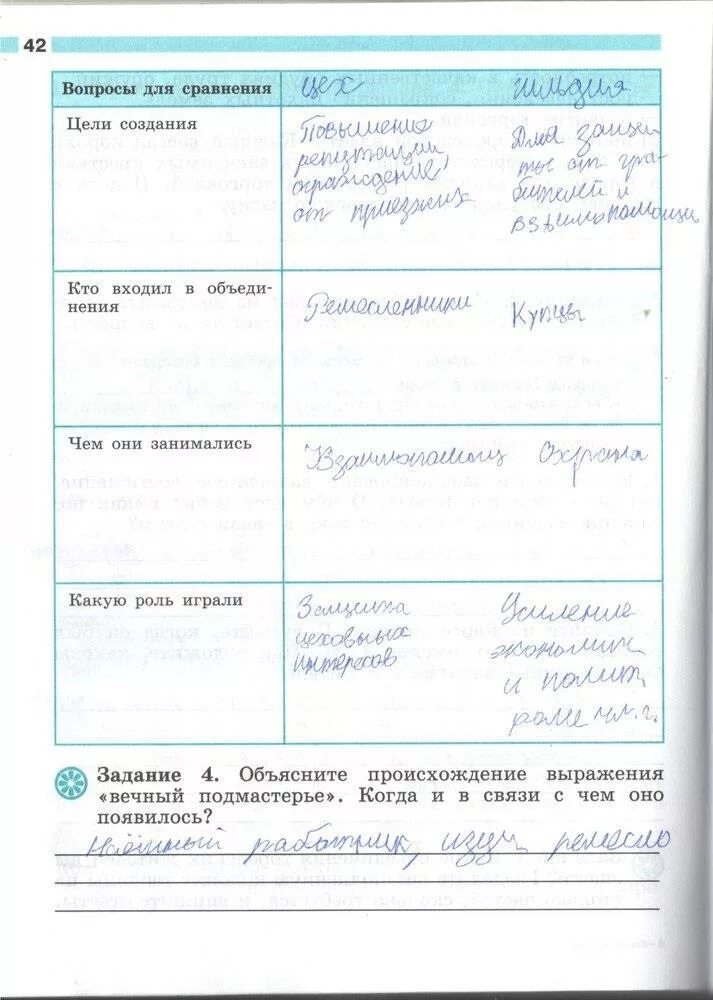 42
Вопросы для сравнения цех гильдия
Цели создания
Повышение
репутации,
ограждение
от приезжих
Для защи
ты от гра
бителей и
взаимопомощи
Кто входил в объеди-
нения
Ремесленники
Купцы
Чем они занимались
Взаимопомощ
Охрана
Какую роль играли
Защитка
цеховых
интересов
Усиление
экономич
и полит
роли чл. г.
Задание 4. Объясните происхождение выражения
«вечный подмастерье». Когда и в связи с чем оно
появилось?
Наёмный работник, изуч ремесло